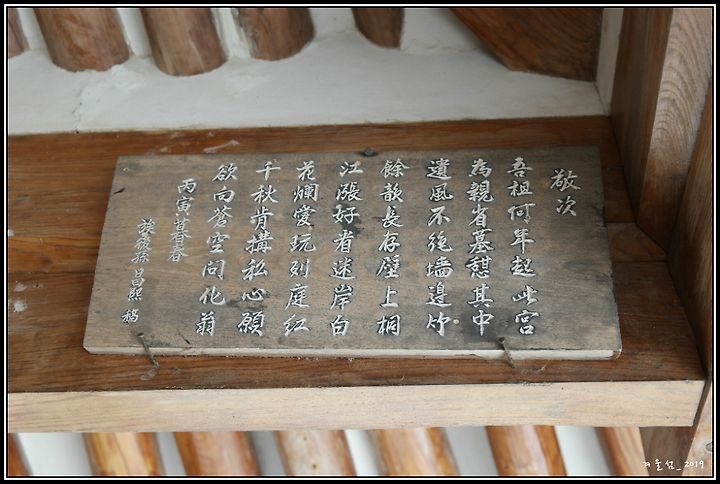 敬次
吾祖何年起此宮
為親省墓憩其中
遺風不絶墻邊竹
餘韻長存壁上桐
江漲好看迷岸白
花爛愛玩列庭紅
千秋肯搆私心願
欲向蒼空問化翁
丙寅暮春
族後孫 昌熙 稿
겨울섬_2019